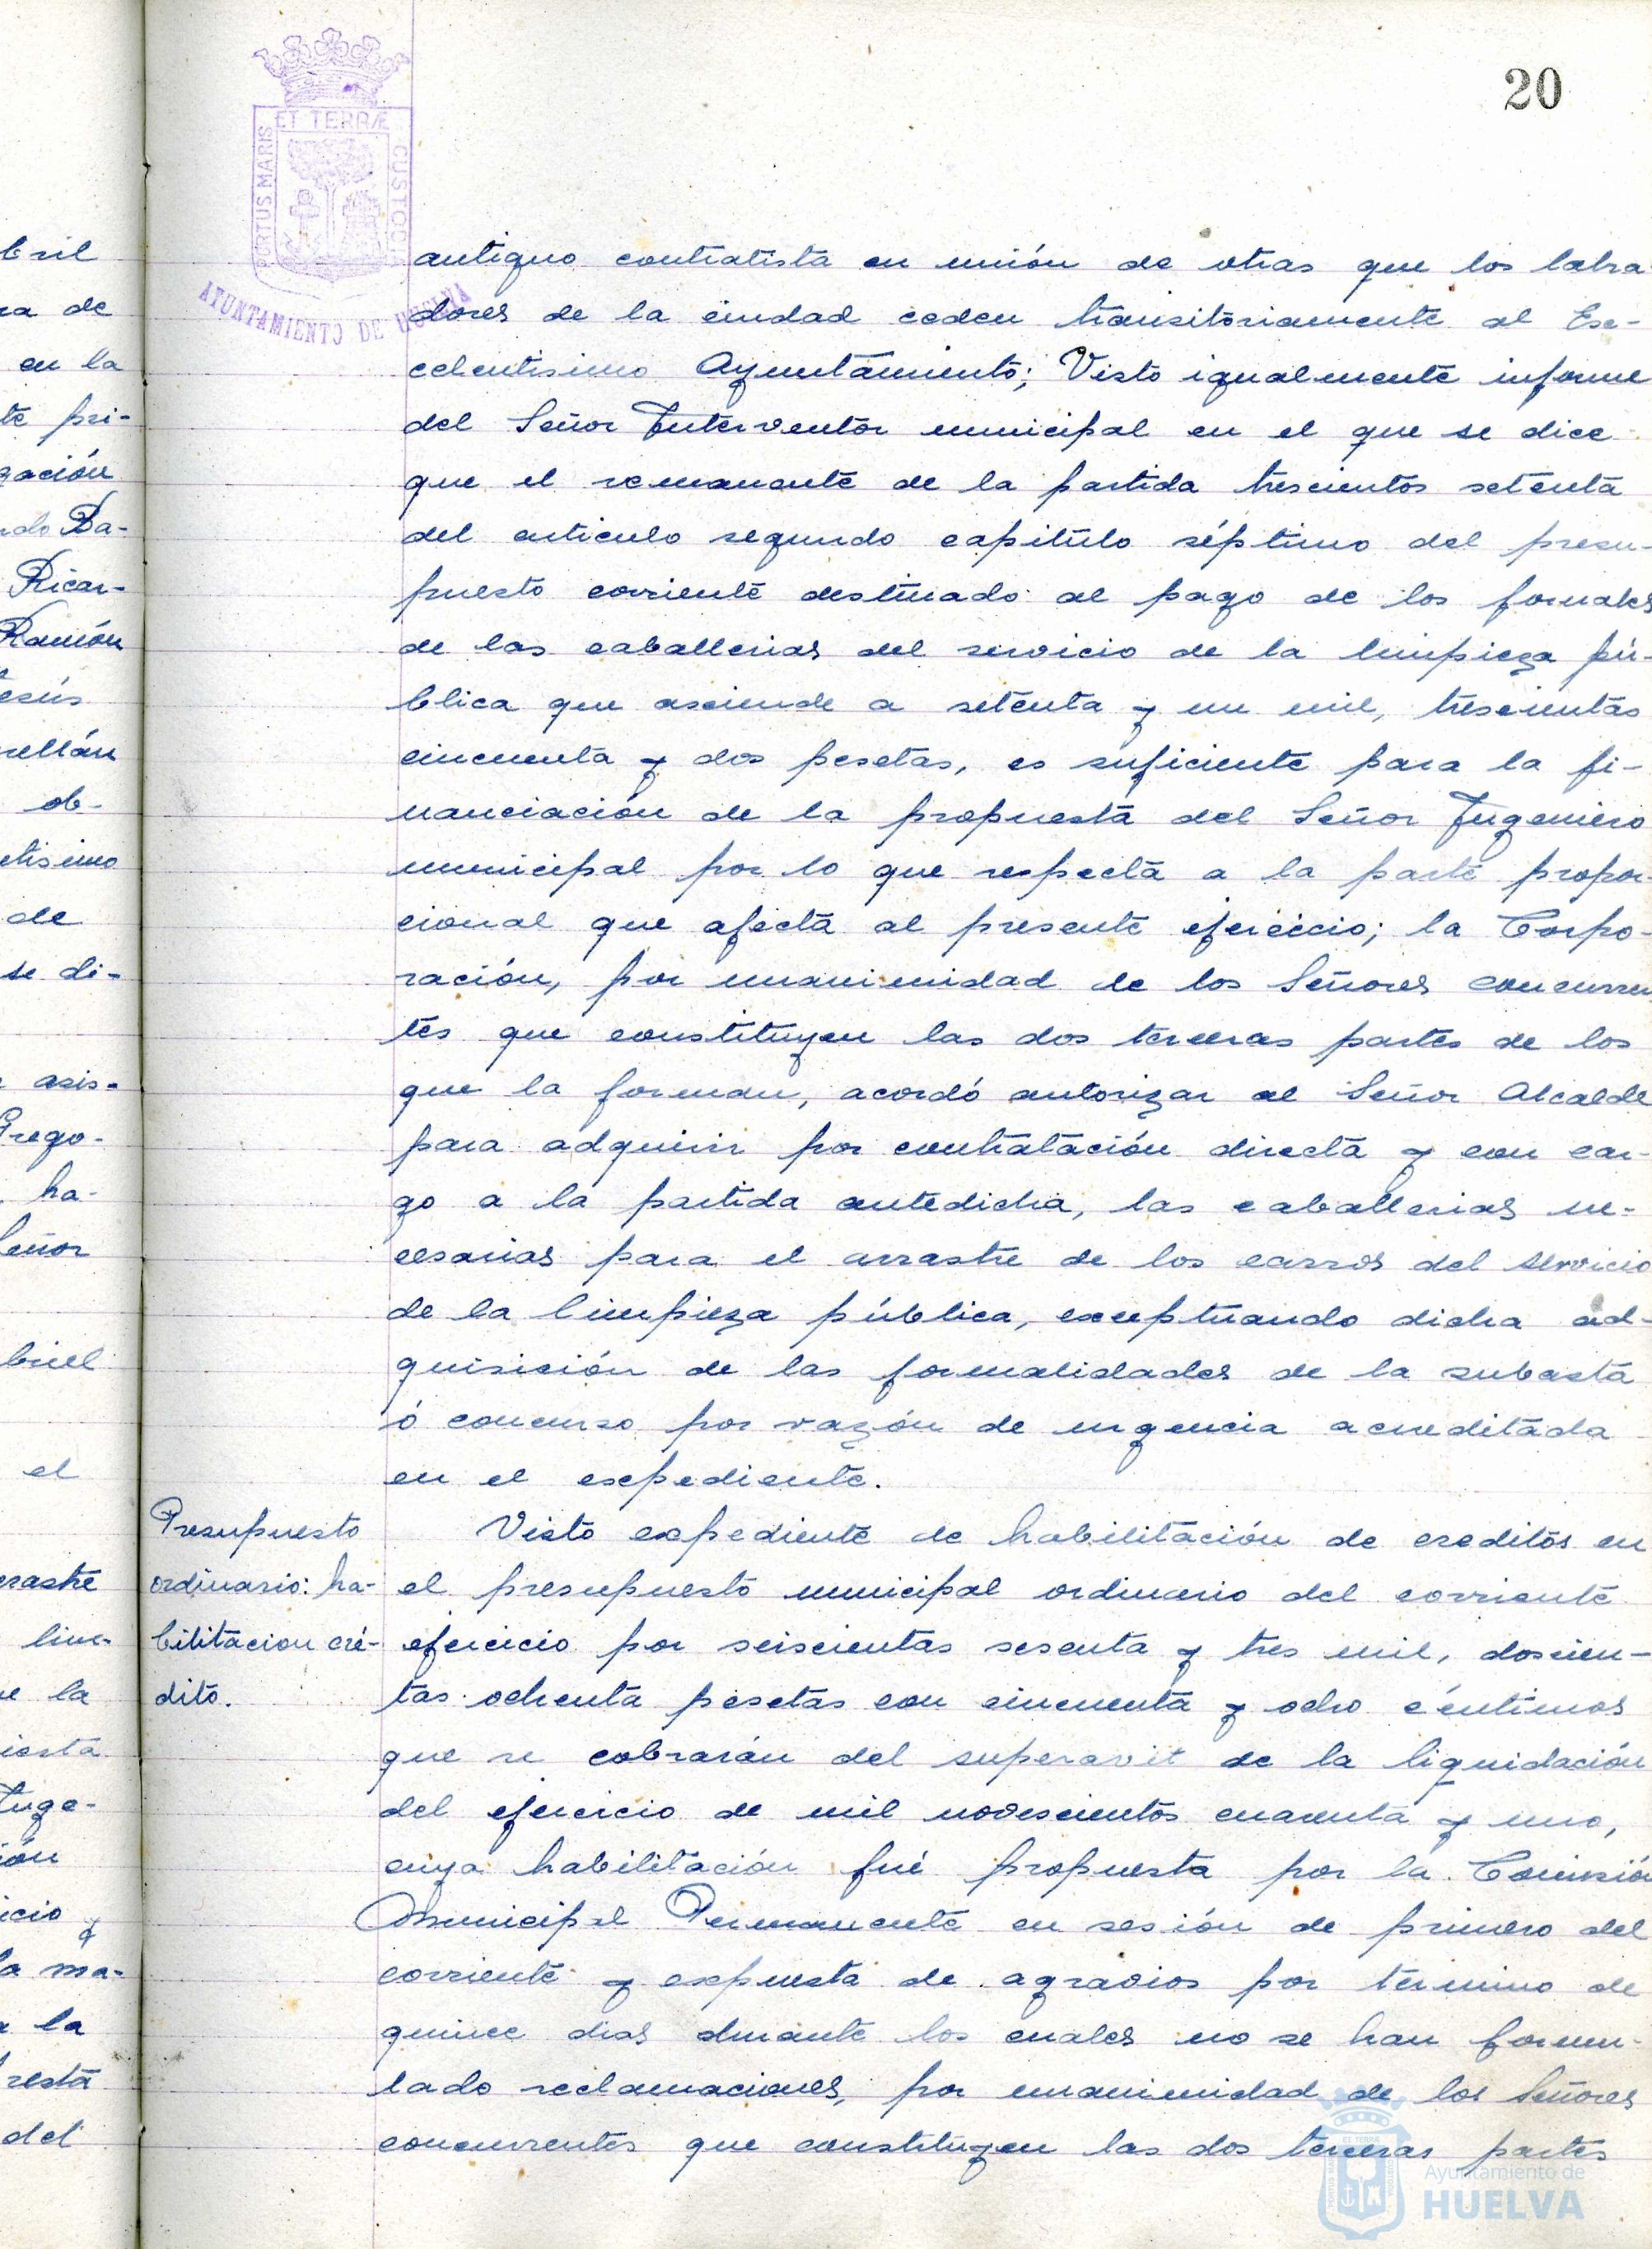 20
PORTUS MARIS
ET TERRÆ
CUSTODI
AYUNTAMIENTO DE HUELVA
antiguo contratista en unión de otras que los labra-
dores de la ciudad ceden transitoriamente al Exc-
celentisimo Ayuntamiento; Visto igualmente informe
del Señor Interventor municipal en el que se dice
que el remanente de la partida trescientos setenta
del articulo segundo capitulo séptimo del presu-
puesto corriente destinado al pago de los jornales
de las caballerias del servicio de la limpieza pú-
blica que asciende a setenta y un mil, trescientas
cincuenta y dos pesetas, es suficiente para la fi-
nanciación de la propuesta del Señor Ingeniero
municipal por lo que respecta a la parte propor-
cional que afecta al presente ejercicio; la Corpo-
ración, por unanimidad de los Señores concurren
tes que constituyen las dos terceras partes de los
que la forman, acordó autorizar al Señor Alcalde
para adquirir por contratación directa y con car-
go a la partida antedicha, las caballerias ne-
cesarias para el arrastre de los carros del servicio
de la limpieza pública, exceptuando dicha ad-
quisición de las formalidades de la subasta
ó concurso por razón de urgencia acreditada
en el expediente.
Presupuesto
ordinario: ha-
bilitacion cré-
dito.
Visto expediente de habilitación de creditos en
el presupuesto municipal ordinario del corriente
ejercicio por seiscientas sesenta y tres mil, doscien-
tas ochenta pesetas con cincuenta y ocho céntimos
que se cobrarán del superavit de la liquidación
del ejercicio de mil novescientos cuarenta y uno,
cuya habilitación fué propuesta por la Comisión
Municipal Permanente en sesión de primero del
corriente y expuesta de agravios por termino de
quince dias durante los cuales no se han formu-
lado reclamaciones, por unanimidad de los Señores
concurrentes que constituyen las dos terceras partes
bril
ra de
en la
te pri-
gación
ndo Ba-
Ricar-
Ramón
esús
rellán
ob-
ntisimo
de
se di-
asis-
Grego-
ha-
Señor
briel
el
rrastre
lim-
la
Inge-
ión
icio y
la ma-
la
resta
del
Ayuntamiento de
HUELVA